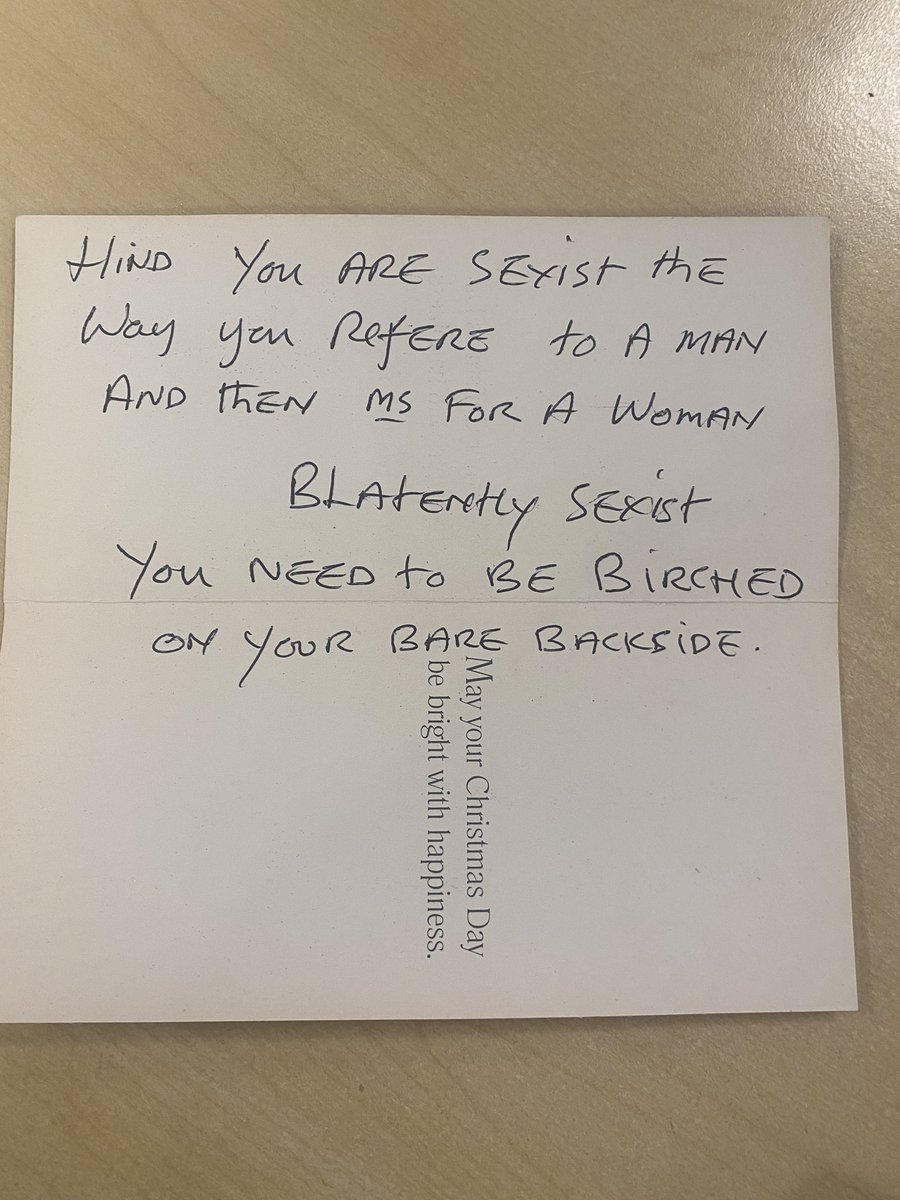 HIND YOU ARE SEXIST THE
WAY YOU REFERE TO A MAN
AND THEN MS FOR A WOMAN
BLATENTLY SEXIST
YOU NEED TO BE BIRCHED
ON YOUR BARE BACKSIDE.
May your Christmas Day
be bright with happiness.